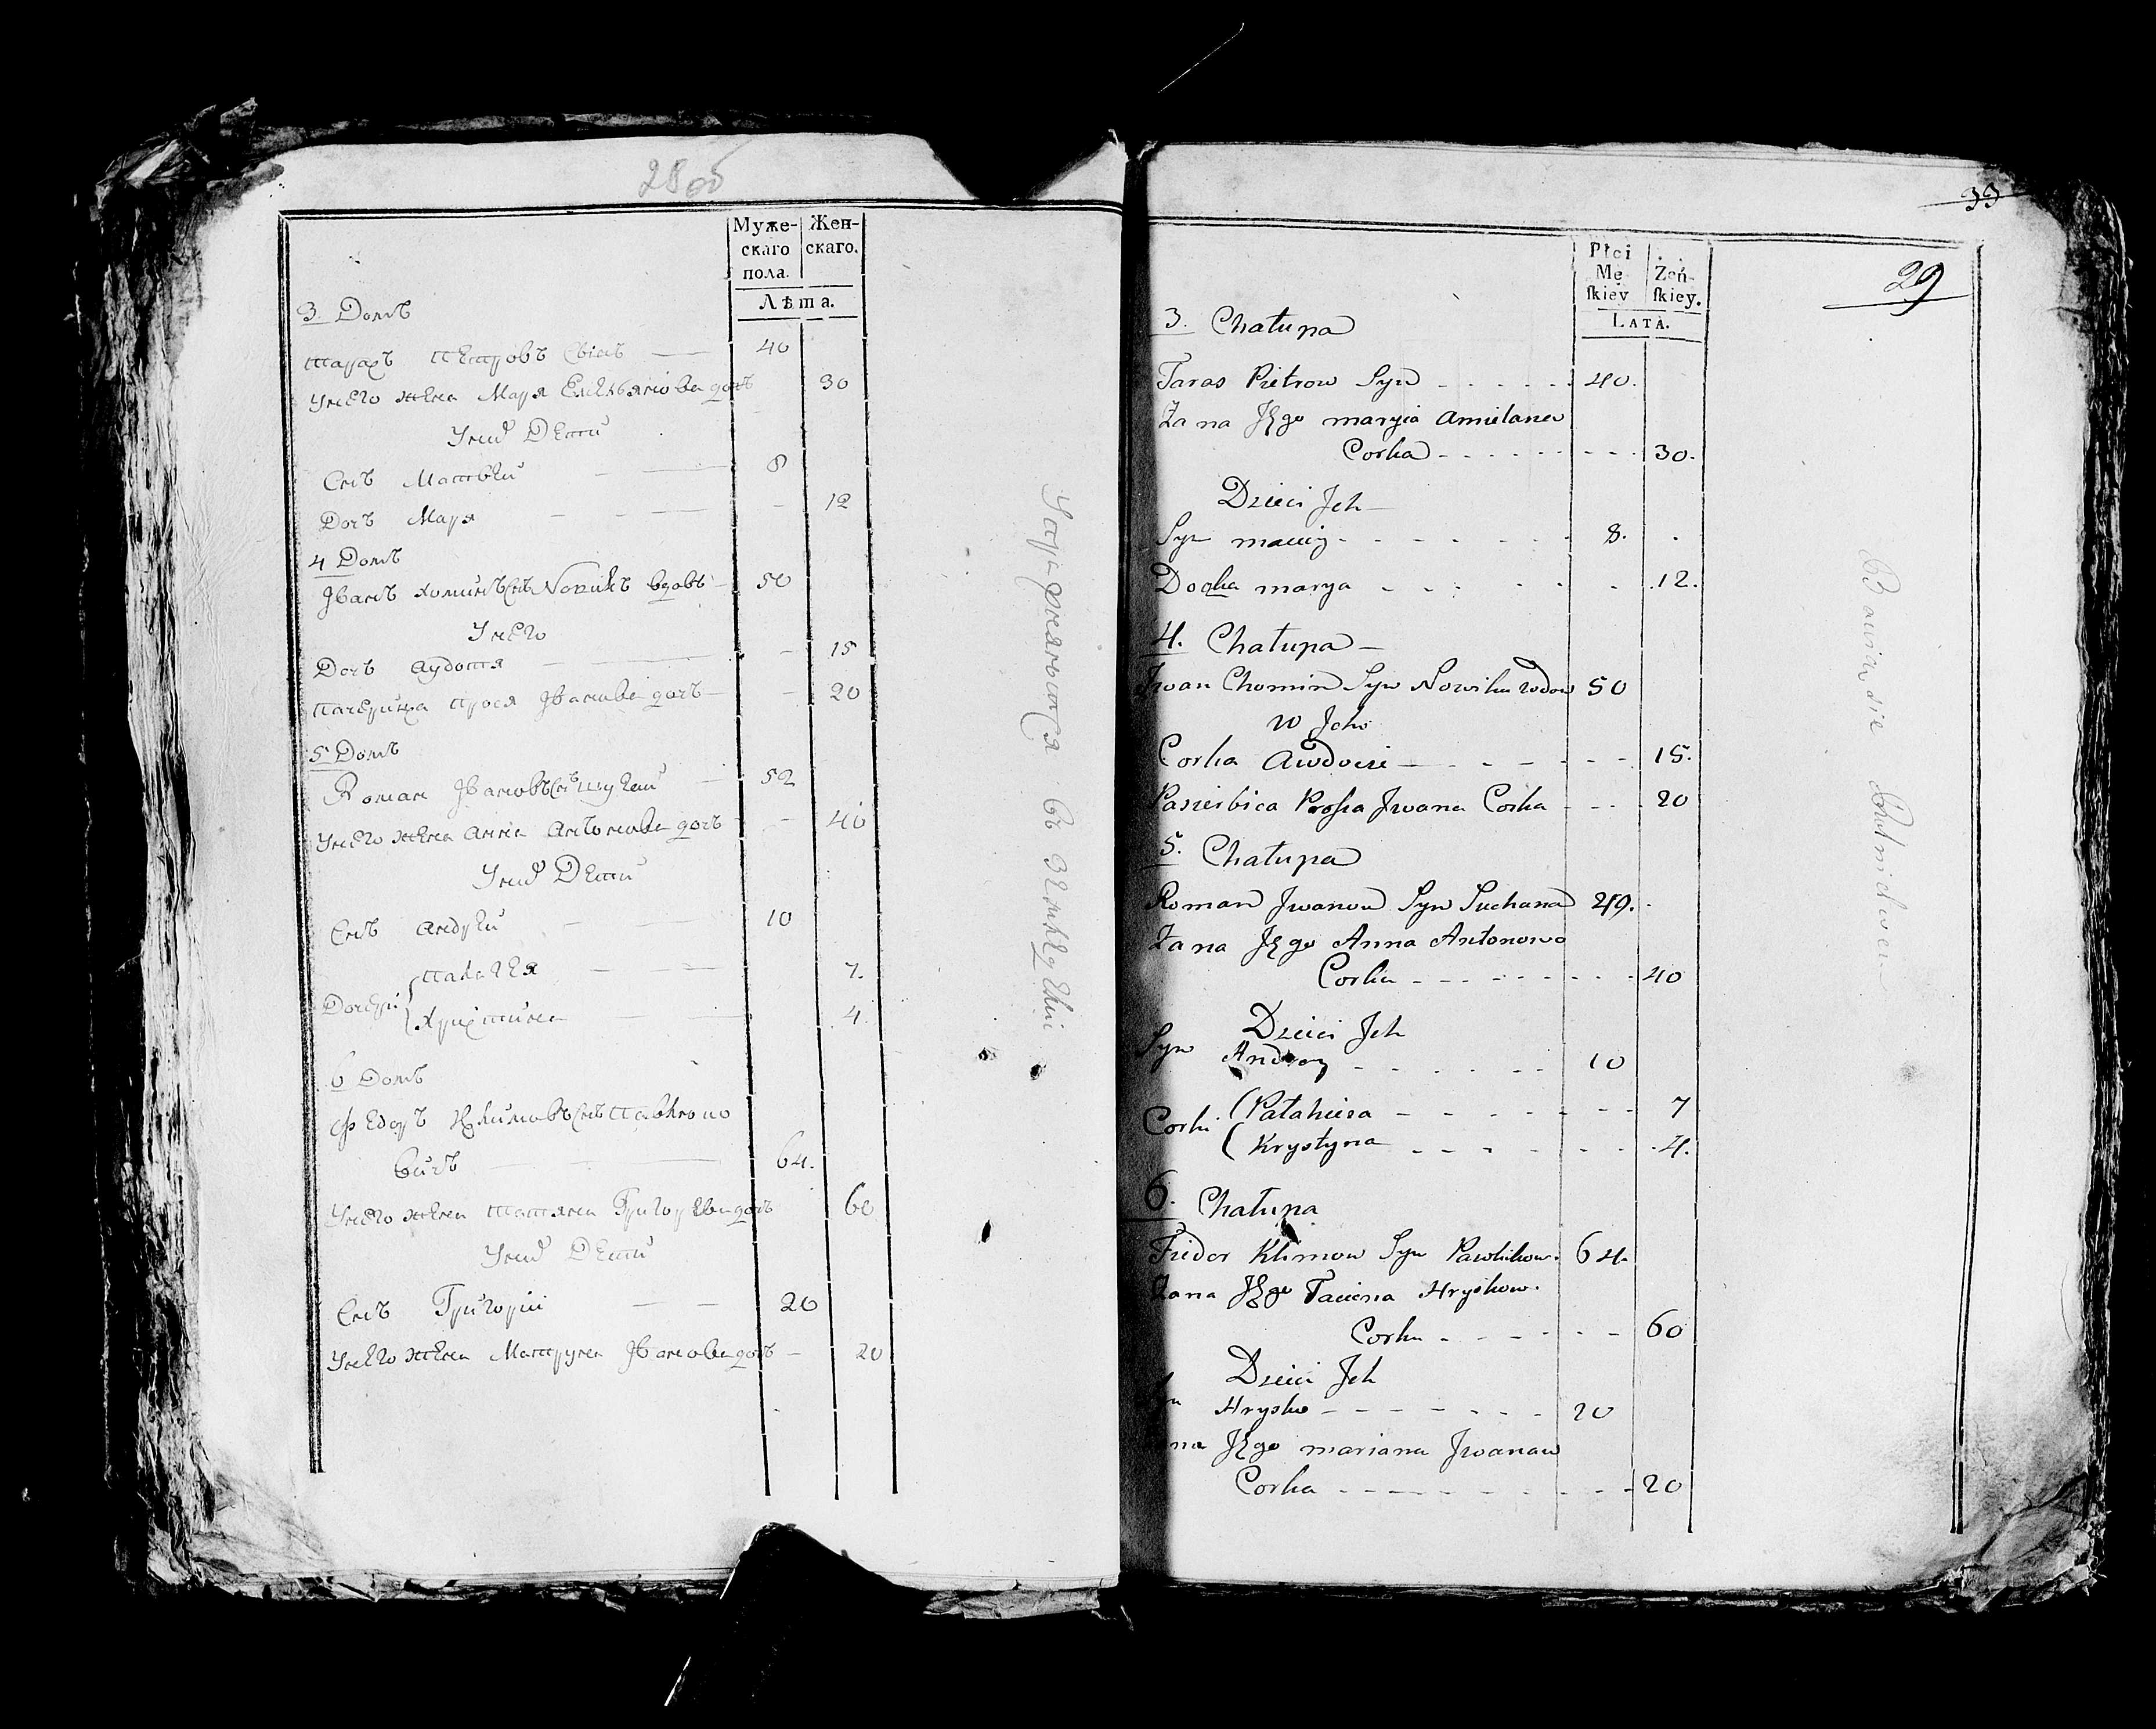 28об
Муже-
скаго
пола.
Жен-
скаго.
Лѣта.
3 Домъ
Тарахъ Петровъ Сынъ — 40
Унего жена Маря Емельянова дочъ 30
Уних Дети
Снъ Матвей — 8
Дочъ Маря — 12
4 Домъ
Иванъ Хоминъ Снъ Новикъ вдовъ — 50
Унего
Дочъ Аудотя — 15
Пачерица Прося Иванова дочъ — 20
5 Домъ
Роман Ивановъ Снъ 52
Унего жена Анна Антонова дочъ 40
Уних Дети
Снъ Андрей — 10
Дочери Палагея — 7.
Христина — 4
6 Домъ
Федоръ Климовъ Снъ Павлюко
вичъ — 64.
Унего жена Татяна Григорева дочъ 60
Уних Дети
Снъ Григорий — 20
Унего жена Матруна Иванова дочъ — 20
33
29
Płci
Mę
ſkiey
Zeń-
ſkiey.
LATA.
3. Chałupa
Taras Pietrow Syn - - - - 40.
Żana Jego maryia Amielanow
Corka - - - - 30.
Dzieci Jch
Syn maciey - - - - 8.
Doczka marya - - - - 12.
4. Chałupa
Jwan Chomin Syn Nowik wdow 50
w Jeho
Corka Awdocia - - - - 15.
Pasierbica Prosia Jwana Corka - - - 20
5. Chałupa
Roman Jwanow Syn 49.
Żana Jego Anna Antonowa
Corka - - - - 40
Dzieci Jch
Syn Andrey - - - - 10
Corki (Pałahieia - - - - 7
(Krystyna - - - - 4.
6. Chałupa
Fiedor Klimow Syn Pawlukow. 64.
Żana Jego Taciena Hryskow.
Corka - - - - 60
Dzieci Jch
Hrysko - - - - 20
Jego mariana Jwanaw
Corka - - - - 20